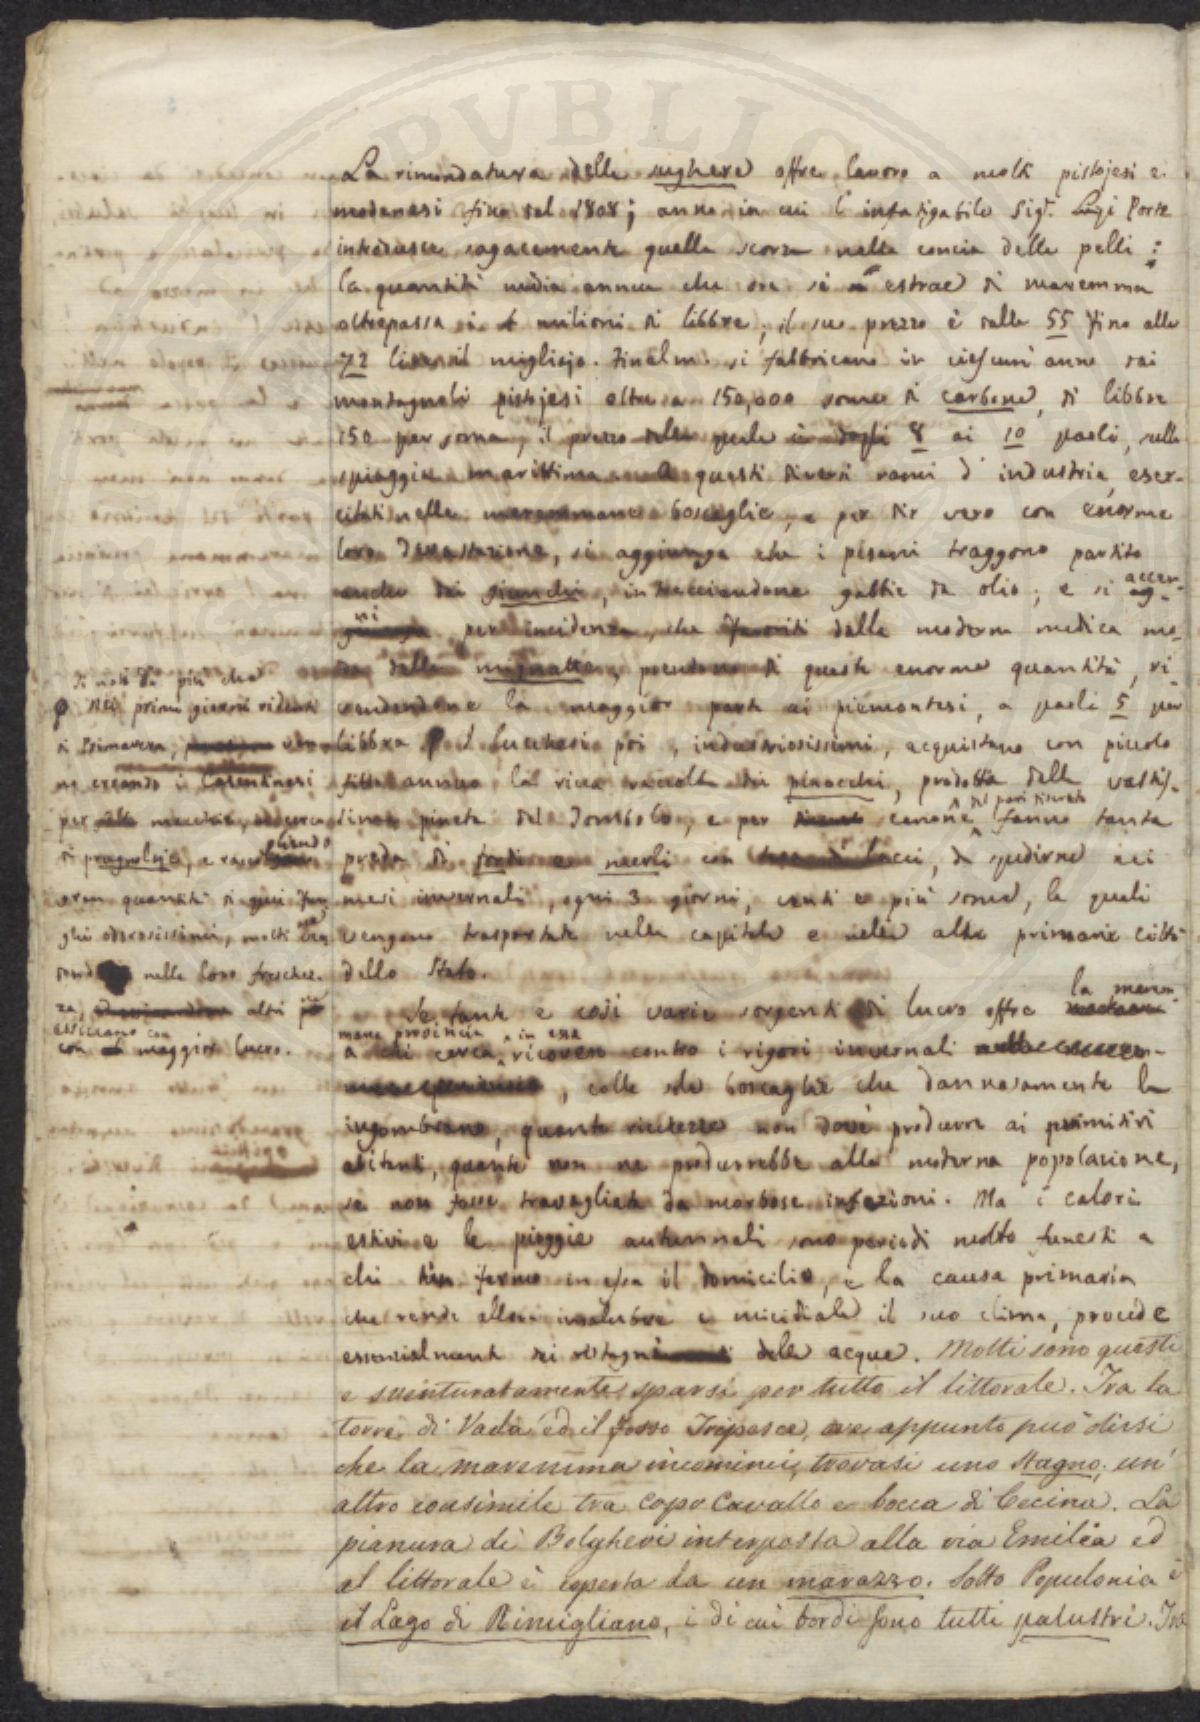 La rimondatura delle sughere offre lavoro a molti pistojesi e
modanesi fino dal 1808; anno in cui l'infatigabile Sigr. Luigi Porte
introdusse sagacemente quella scorza nella concia delle pelli:
la quantità media annua che ora si estrae di maremma
oltrepassa i 4 milioni di libbre, il suo prezzo è dalle 55 fino alle
72 lire il migliajo. Finalm. si fabbricano in ciascun'anno dai
montagnoli pistojesi oltre a 150,000 some di carbone, di libbre
150 per soma, il prezzo delle quali è dagli 8 ai 10 paoli, sulla
spiaggia marittima. A questi diversi rami d'industria, eser-
citati nelle maremmane boscaglie, e per dir vero con enorme
loro devastazione, si aggiunga che i pisani traggono partito
anche dai giunchi, intrecciandone gabbie da olio; e si accen-
ni per incidenza, che dalla moderna medica mo-
da delle mignatte, prendono di queste enorme quantità, ri-
vendendone la maggior parte ai piemontesi, a paoli 5 per
libbra. I lucchesi poi, industriosissimi, acquistano con piccolo
fitto annuo la ricca raccolta dei pinocchi, prodotta dalla vastis-
sima pineta del Tombolo, e per canone del pari tenue fanno tanta
preda di tordi e merli con lacci, da spedirne nei
mesi invernali, ogni 3 giorni, venti e più some, le quali
vengono trasportate nella capitale e nelle altre primarie città
dello Stato.
Si noti di più che
nei primi giorni ridenti
di Primavera,
no creando i Casentinesi
per macchie, in cerca
di prugnoli, e raccogliendo
gran quantità di quei fun
ghi odorosissimi, molti ven
dono nella loro freschez-
za, altri più
essiccano con
maggior lucro.
Se tante e così varie sorgenti di lucro offre la marem-
mana provincia a chi cerca in essa ricovero contro i rigori invernali
, colle sole boscaglie che dannosamente la
ingombrano, quante ricchezze non dovè produrre ai primitivi
abitanti, quante non ne produrrebbe alla moderna popolazione,
se non fosse travagliata da morbose infezioni. Ma i calori
estivi e le pioggie autunnali sono periodi molto funesti a
chi tien fermo in essa il domicilio, e la causa primaria
che rende allora insalubre e micidiale il suo clima, procede
essenzialmente dai ristagni delle acque. Molti sono questi
e sventuratamente sparsi per tutto il littorale. Tra la
torre di Vada ed il fosso Tripesce, ove appunto può dirsi
che la maremma incominci, trovasi uno stagno; un'
altro consimile tra Capo Cavallo e bocca di Cecina. La
pianura di Bolgheri interposta alla via Emilia ed
al littorale è coperta da un marazzo. Sotto Populonia è
il Lago di Rimigliano, i di cui bordi sono tutti palustri. Tra